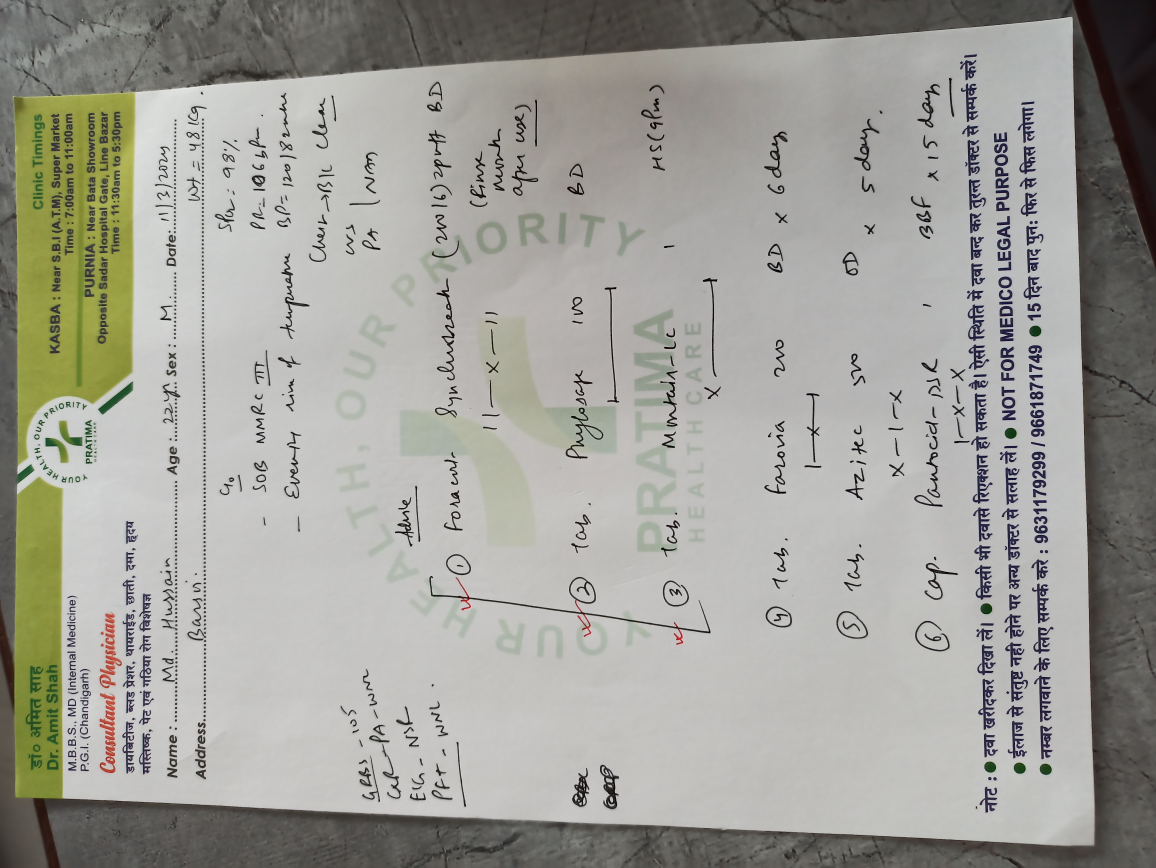 डॉ० अमित साह
Dr. Amit Shah
M.B.B.S., MD (Internal Medicine)
P.G.I. (Chandigarh)
Consultant Physician
डायबिटीज, ब्लड प्रेशर, थायराईड, छाती, दमा, हृदय
मस्तिष्क, पेट एवं गठिया रोग विशेषज्ञ
YOUR HEALTH, OUR PRIORITY
PRATIMA
HEALTHCARE
Clinic Timings
KASBA : Near S.B.I (A.T.M), Super Market
Time : 7:00am to 11:00am
PURNIA : Near Bata Showroom
Opposite Sadar Hospital Gate, Line Bazar
Time : 11:30am to 5:30pm
Name : Md. Hussain Age : 22 yr Sex : M Date: 11/3/2024
Address Barsoi. Wt = 48 kg.
C/o
- SOB MMRC III
- Evening rise of temperature
SPO2: 98%
PR = 106 bpm.
BP = 120/82 mmHg
Chest → B/L Clear
CVS
PA | NAD
GRBS - 105
CXR - PA - WNL
ECG - NSR
PFT - WNL.
Advice
① Foracort Synchrobreath (200/6) 2 puff BD
11 — x — 11 (Rinse mouth after use)
② Tab. Phylosape 100 BD
1 — 1
③ Tab. Montair-LC 1 HS (9 Pm)
x — 1
④ Tab. Farovia 200 BD x 6 days
1 — x — 1
⑤ Tab. Azitec 500 OD x 5 days.
x — 1 — x
⑥ Cap. Pantocid-DSR 1 BBF x 15 days
1 — x — x
YOUR HEALTH, OUR PRIORITY
PRATIMA
HEALTHCARE
नोट : ● दवा खरीदकर दिखा लें। ● किसी भी दवासे रिएक्शन हो सकता है। ऐसी स्थिति में दवा बन्द कर तुरन्त डॉक्टर से सम्पर्क करें।
● ईलाज से संतुष्ट नही होने पर अन्य डॉक्टर से सलाह लें। ● NOT FOR MEDICO LEGAL PURPOSE
● नम्बर लगवाने के लिए सम्पर्क करे : 9631179299 / 9661871749 ● 15 दिन बाद पुनः फिर से फिस लगेगा।